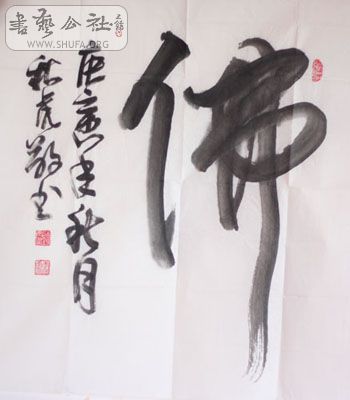 佛
庚寅年秋月
秋虎敬书
書藝公社
WWW.SHUFA.ORG